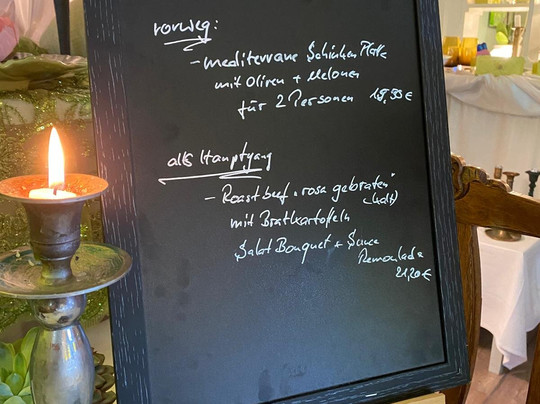 vorweg:
- mediterrane Schinken Platte
mit Oliven + Melonen
für 2 Personen 19,95 €
als Hauptgang
- Roastbeef "rosa gebraten"
(kalt)
mit Bratkartoffeln
Salat Bouquet + Sauce
Remoulade
21,20 €